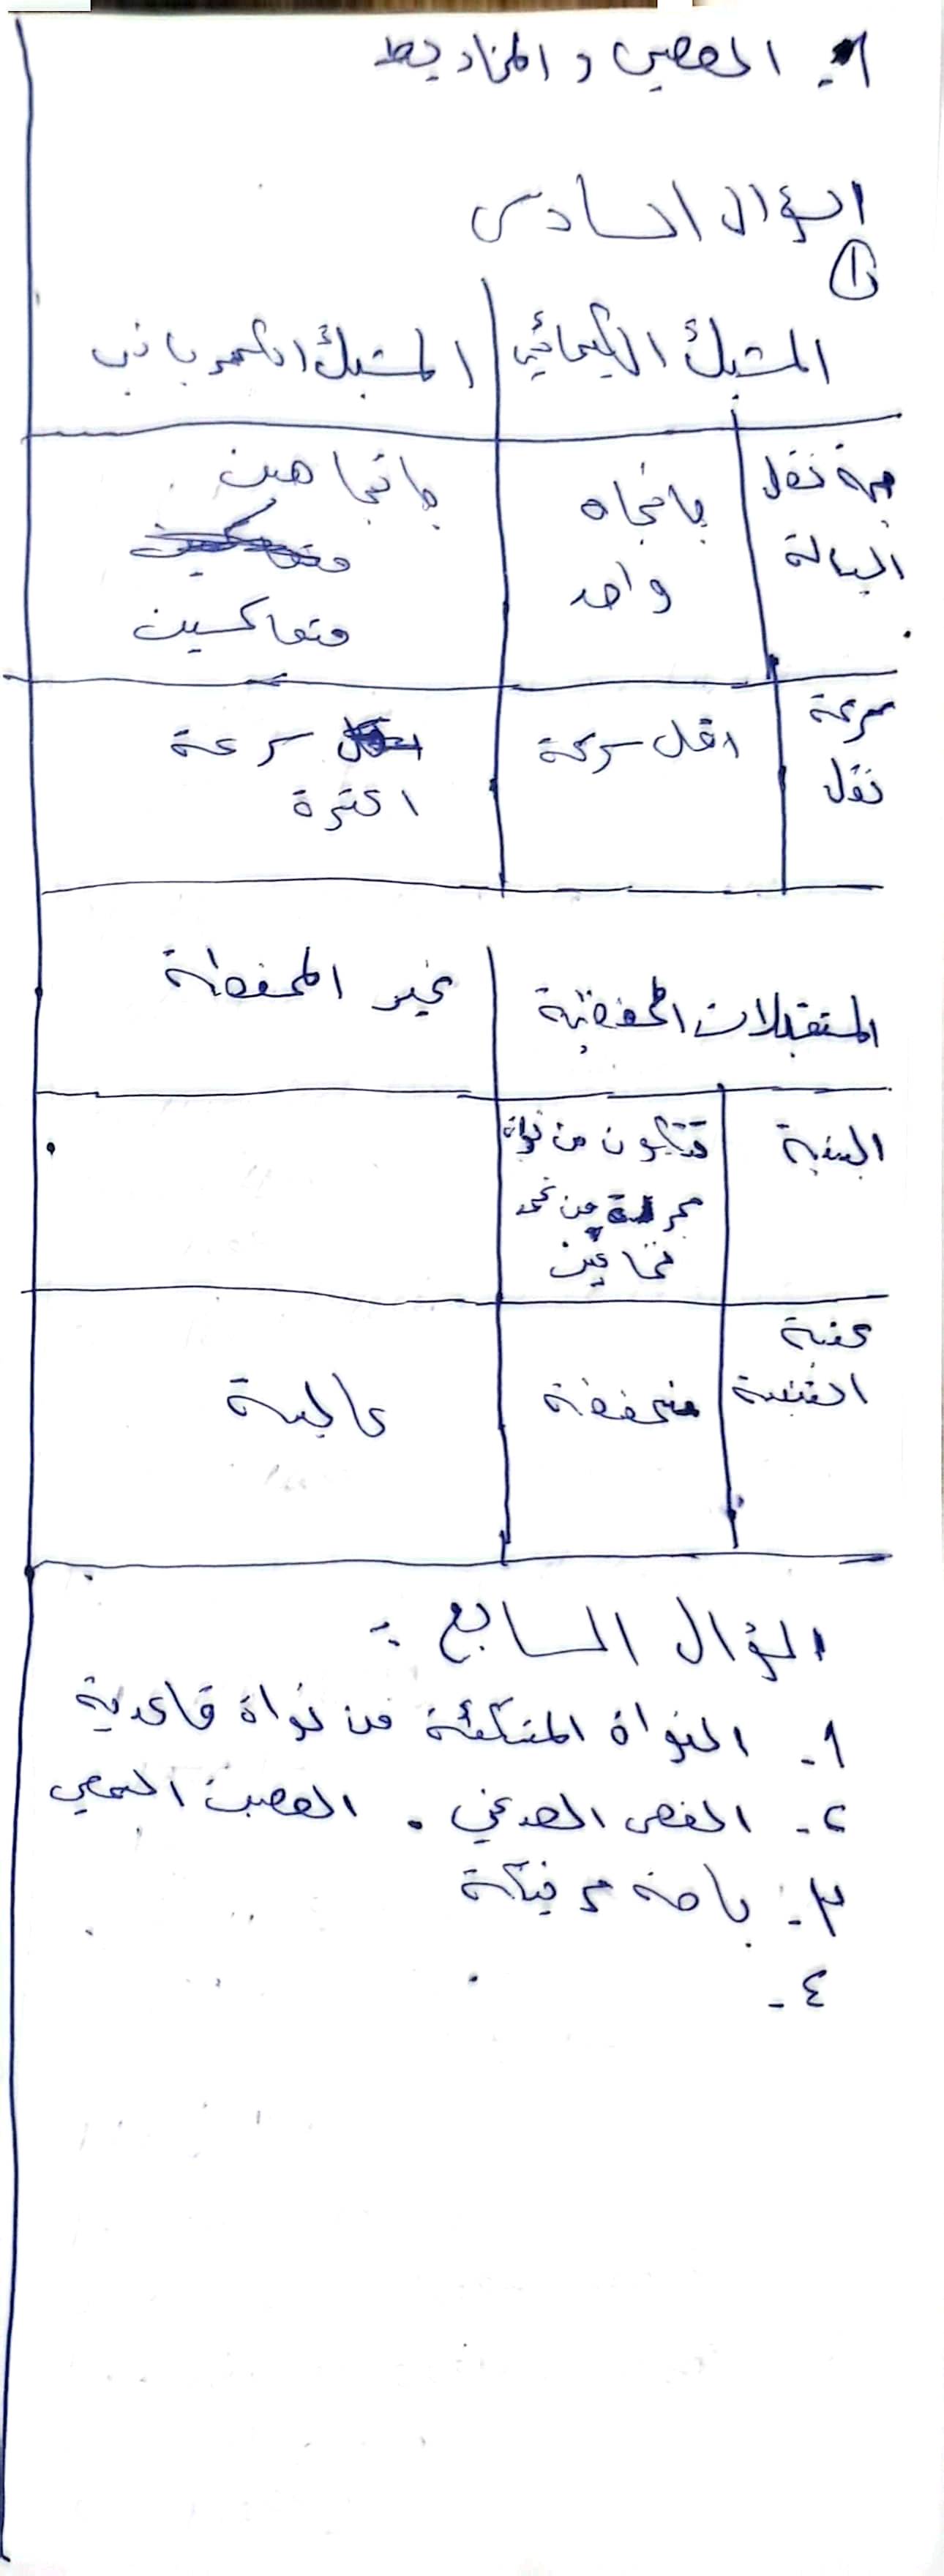 ٩. العصي و المخاريط
السؤال السادس
①
المشبك الكيميائي | المشبك الكهربائي
جهة نقل السيالة | باتجاه واحد | باتجاهين متعاكسين
سرعة نقل | اقل سرعة | سرعة اكثرة
المستقبلات المحفظية | غير المحفظة
البنية | تتكون من نواة مجردة من غمد نخاعين |
عتبة التنبيه | منخفضة | عالية
السؤال السابع :
١- النواة المتكئة من نواة قاعدية
٢- الفص الصدغي . العصب السمعي
٣- باحة فيرنيكة
٤-